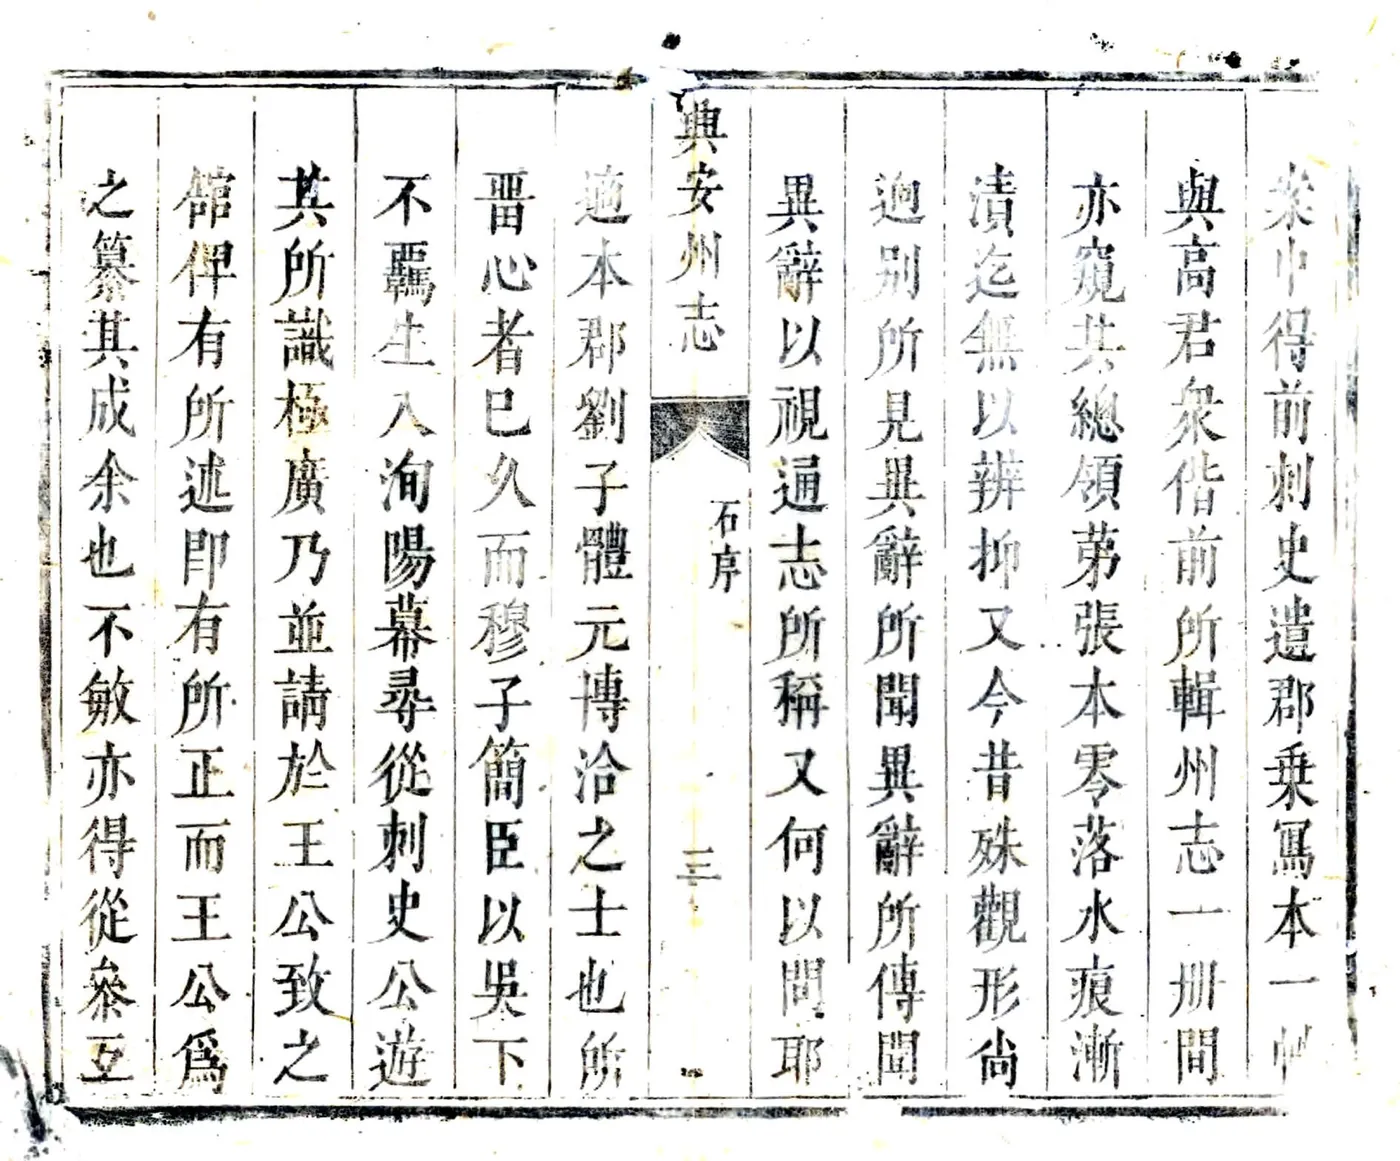 案中得前刺史遺郡乗冩本一帙
與高君衆偕前所輯州志一册間
亦窺其總領苐張本零落水痕漸
漬迄無以辨抑又今昔殊觀形尙
逈别所見異辭所聞異辭所傳聞
異辭以視通志所稱又何以間耶
興安州志
石序
三
適本郡劉子體元博洽之士也所
畱心者已久而穆子簡臣以吳下
不羈生入洵陽幕尋從刺史公遊
其所識極廣乃並請於王公致之
舘俾有所述卽有所正而王公爲
之纂其成余也不敏亦得從叅互